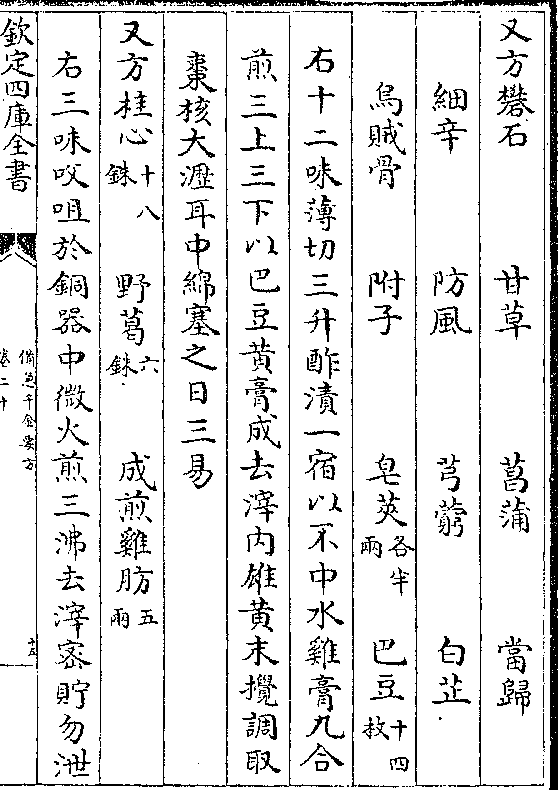 又方礬石　甘草　菖蒲　當歸
細辛　防風　芎藭　白芷
烏賊骨　附子　皂莢各半兩　巴豆十四枚
右十二味薄切三升酢漬一宿以不中水雞膏九合
煎三上三下以巴豆黄膏成去滓内雄黄末攪調取
棗核大瀝耳中綿塞之日三易
又方桂心十八銖　野葛六銖　成煎雞肪五兩
右三味㕮咀於銅器中微火煎三沸去滓密貯勿泄
欽定四庫全書
備急千金要方
卷二十